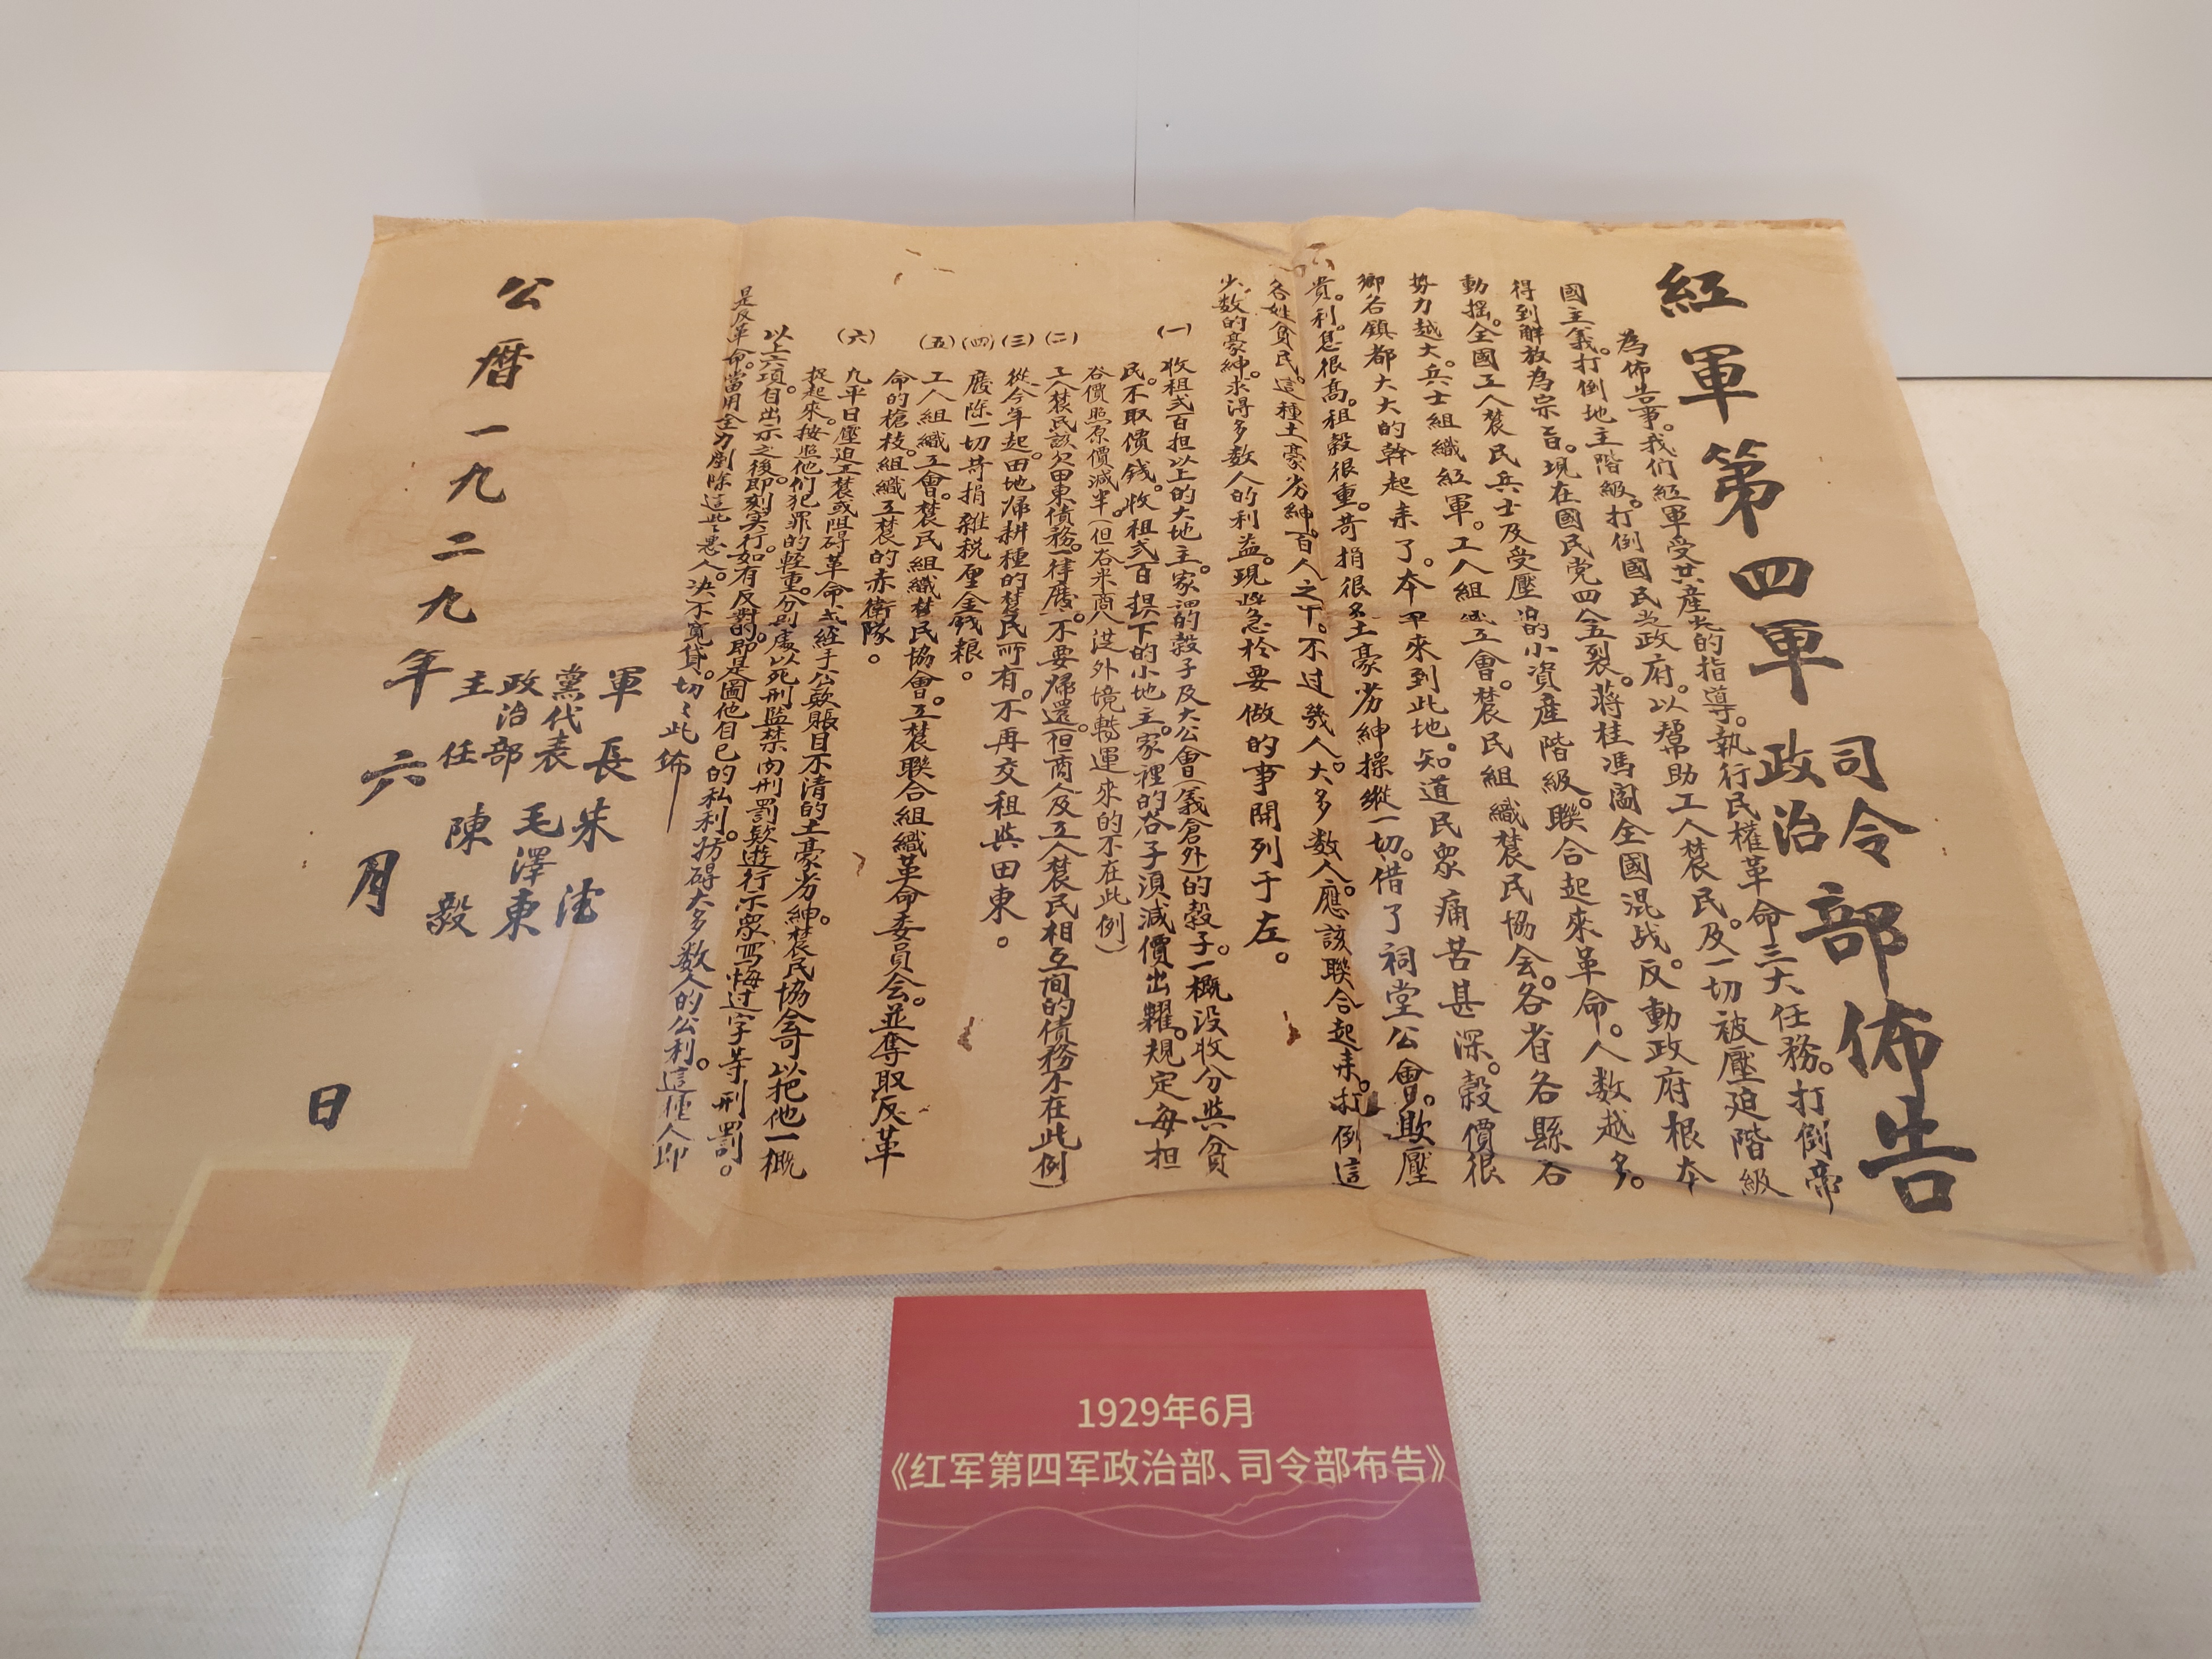 紅軍第四軍司令部政治部佈告
為佈告事。我们紅軍受共產党的指導。執行民權革命三大任務。打倒帝
國主義。打倒地主階級。打倒國民党政府。以幫助工人農民。及一切被壓迫階級
得到解放為宗旨。現在國民党四分五裂。蔣桂馮閻全國混战。反動政府根本
動摇。全國工人農民兵士及受壓迫的小資産階級。聯合起來革命。人数越多。
势力越大。兵士組織紅軍。工人組織工會。農民組織農民協会。各省各縣各
鄉各鎮都大大的幹起来了。本軍來到此地。知道民衆痛苦甚深。穀價很
貴。利息很高。租穀很重。苛捐很多。土豪劣紳操縱一切。借了祠堂公會。欺壓
各姓貧民。這種土豪劣紳。百人之中。不过幾人。大多数人。應該聯合起来。打倒這
少数的豪紳。求得多数人的利益。現將急於要做的事開列于左。
(一) 收租弍百担以上的大地主。家裡的穀子及大公會(義倉外)的穀子。一概没收分與貧
民。不取價钱。收租弍百担下的小地主。家裡的谷子須減價出糶。規定每担
谷價照原價減半。(但谷米商人從外境輓運來的不在此例)
(二) 工人農民該欠田東債務。一律廢。不要歸還。(但商人及工人農民相互间的債務不在此例)
(三) 從今年起。田地歸耕種的農民所有。不再交租與田東。
(四) 廢除一切苛捐雜税厘金钱粮。
(五) 工人組織工會。農民組織農民協會。工農聯合組織革命委員会。並奪取反革
命的槍枝。組織工農的赤衛隊。
(六) 凡平日壓迫工農或阻碍革命或經手公款賬目不清的土豪劣紳。農民協会可以把他一概
捉起來。按照他们犯罪的輕重。分别處以死刑監禁肉刑罰款遊行示衆写悔过字等刑罰。
以上六項。自出示之後。即刻实行。如有反對的。即是圖他自己的私利。妨碍大多数人的公利。這種人即
是反革命。當用全力剷除這些惡人。决不寬貸。切切此佈
軍長 朱德
黨代表 毛澤東
政治部主任 陳毅
公曆一九二九年六月 日
1929年6月
《红军第四军政治部、司令部布告》